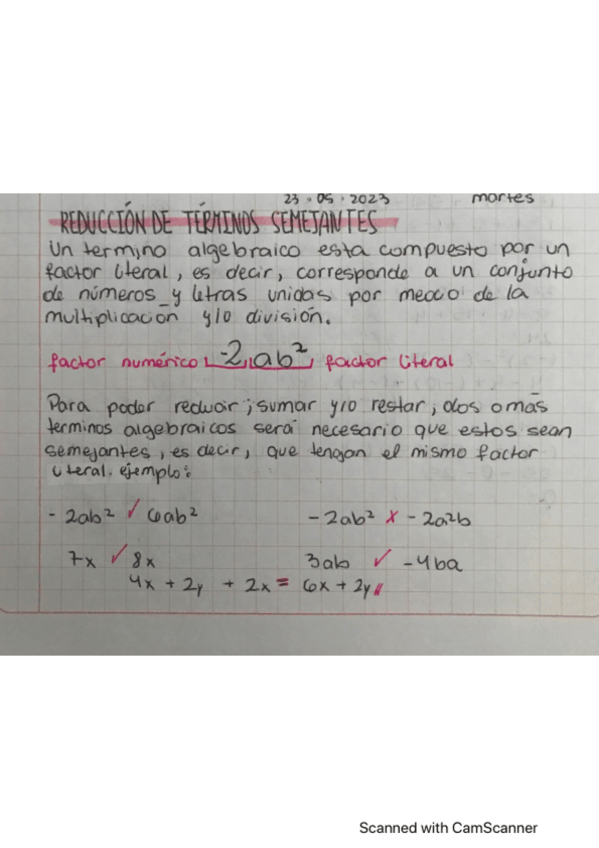 23.05.2023 martes
REDUCCIÓN DE TÉRMINOS SEMEJANTES
Un termino algebraico esta compuesto por un
factor literal, es decir, corresponde a un conjunto
de números y letras unidas por medio de la
multiplicación y/o división.
factor numérico -2 ab² factor literal
Para poder reducir, sumar y/o restar, dos o más
terminos algebraicos será necesario que estos sean
semejantes, es decir, que tengan el mismo factor
literal. ejemplo:
- 2ab² ✓ 6ab² - 2ab² x - 2a²b
7x ✓ 8x 3ab ✓ - 4ba
4x + 2y + 2x = 6x + 2y //
Scanned with CamScanner